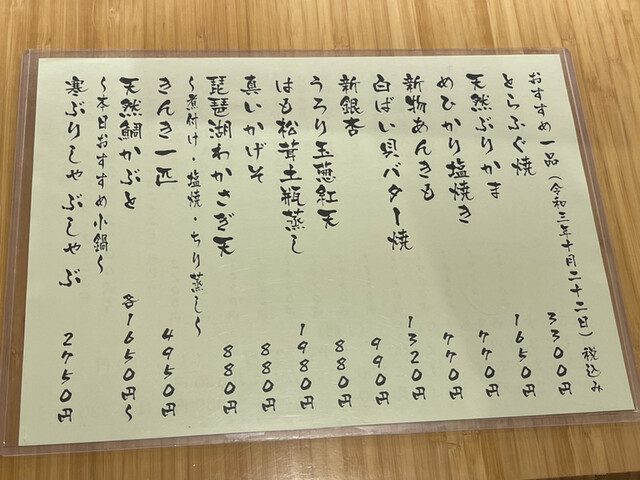 おすすめ一品(令和三年十月二十二日)税込み
とらふぐ焼 3300円
天然ぶりかま 1650円
めひかり塩焼き 770円
新物あんきも 770円
白ばい貝バター焼 1320円
新銀杏 990円
うろり玉葱紅天 880円
はも松茸土瓶蒸し 1980円
真いかげそ 880円
琵琶湖わかさぎ天 880円
〜煮付け・塩焼・ちり蒸し〜
きんき一匹 4950円
天然鯛かぶと 各1650円〜
〜本日おすすめ小鍋〜
寒ぶりしゃぶしゃぶ 2750円